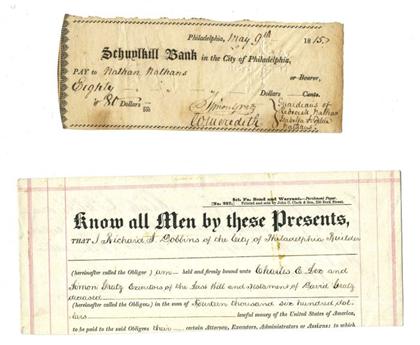 Philadelphia, May 9th 1815
Schuylkill Bank in the City of Philadelphia,
PAY to Nathan Nathans or Bearer,
Eighty Dollars Cents.
Dollars
Simon Gratz
W Meredith
Guardians of
Rebecca Nathans
Nathans
Sci. Fa. Bond and Warrant.—Parchment Paper.
Printed and sold by John C. Clark & Son, 230 Dock Street.
Know all Men by these Presents,
THAT I Richard J Dobbins of the City of Philadelphia Builder
(hereinafter called the Obligor) am held and firmly bound unto Charles E. Lex and
Simon Gratz Executors of the Last Will and Testament of David Gratz
deceased
(hereinafter called Obligees) in the sum of Fourteen thousand six hundred dol-
lars lawful money of the United States of America,
to be paid to the said Obligees their certain Attorney, Executors, Administrators or Assigns: to which